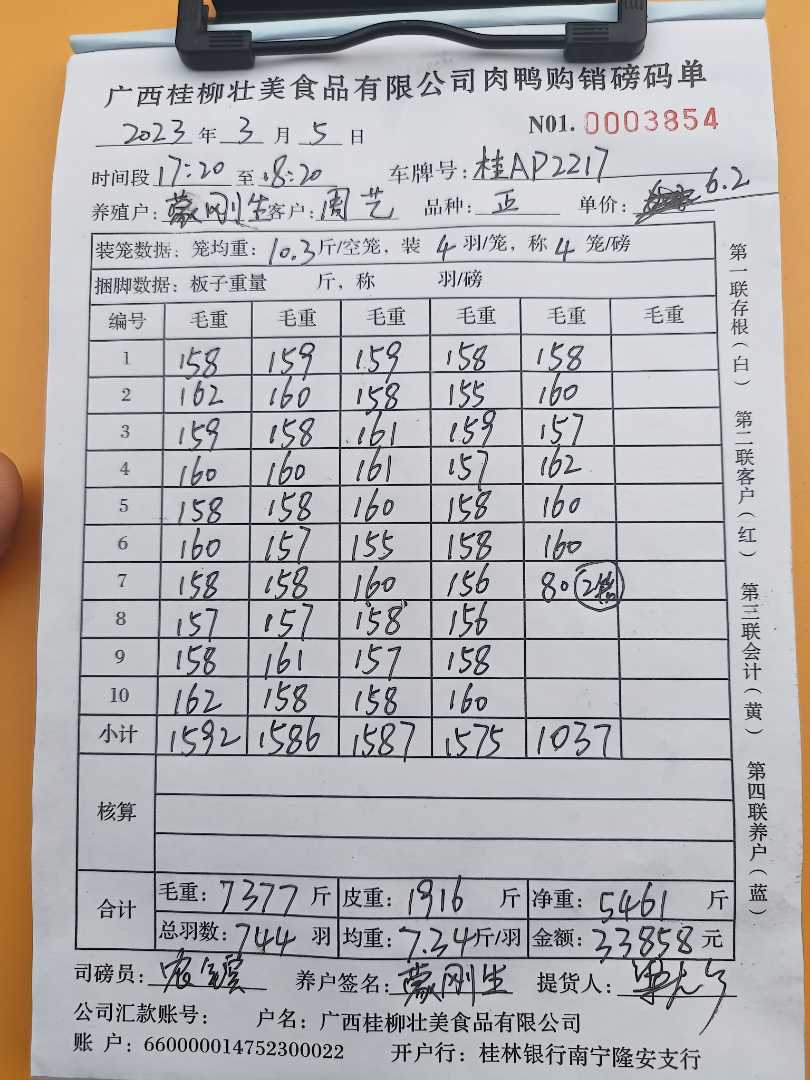 广西桂柳壮美食品有限公司肉鸭购销磅码单
2023 年 3 月 5 日 N01. 0003854
时间段 17:20 至 18:20 车牌号: 桂AP2217
养殖户: 蒙刚生 客户: 周艺 品种: 正 单价: 6.2
装笼数据: 笼均重: 10.3 斤/空笼, 装 4 羽/笼, 称 4 笼/磅
捆脚数据: 板子重量 斤, 称 羽/磅
编号 毛重 毛重 毛重 毛重 毛重 毛重
1 158 159 159 158 158
2 162 160 158 155 160
3 159 158 161 159 157
4 160 160 161 157 162
5 158 158 160 158 160
6 160 157 155 158 160
7 158 158 160 156 80 2笼
8 157 157 158 156
9 158 161 157 158
10 162 158 158 160
小计 1592 1586 1587 1575 1037
核算
合计
毛重: 7377 斤 皮重: 1916 斤 净重: 5461 斤
总羽数: 744 羽 均重: 7.34 斤/羽 金额: 33858 元
司磅员: 养户签名: 蒙刚生 提货人:
公司汇款账号: 户名: 广西桂柳壮美食品有限公司
账 户: 660000014752300022 开户行: 桂林银行南宁隆安支行
第一联存根(白) 第二联客户(红) 第三联会计(黄) 第四联养户(蓝)